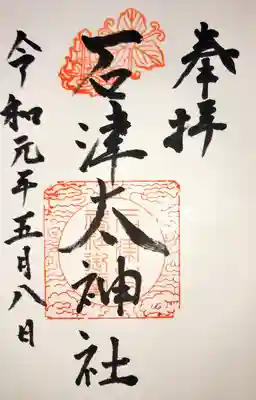 奉拝
石津太神社
令和元年五月八日